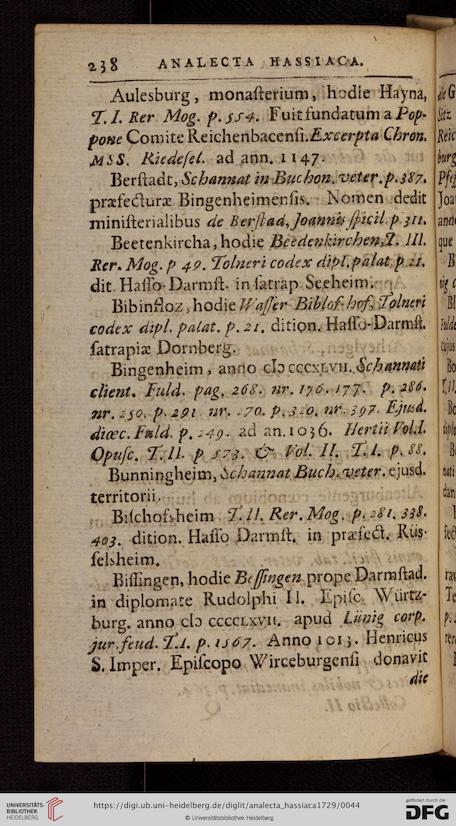 238 ANALECTA HASSIACA.
Aulesburg, monaſterium, hodie Hayna,
T. I. Rer. Mog. p. 554. Fuit fundatum a Pop-
pone Comite Reichenbacenſi. Excerpta Chron.
MSS. Riedeſel. ad ann. 1147.
Berſtadt, Schannat in Buchon. veter. p. 387.
præfecturæ Bingenheimenſis. Nomen dedit
miniſterialibus de Berſtad, Joannis ſpicil. p. 311.
Beetenkircha, hodie Beedenkirchen, T. III.
Rer. Mog. p 49. Tolneri codex dipl. palat. p. 21.
dit. Haſſo-Darmſt. in ſatrap. Seeheim.
Bibinfloz, hodie Waſſer-Biblof. hof. Tolneri
codex dipl. palat. p. 21. dition. Haſſo-Darmſt.
ſatrapiæ Dornberg.
Bingenheim, anno cIↄ cccxlvii. Schannati
client. Fuld. pag. 268. nr. 176. 177. p. 286.
nr. 250. p. 291 nr. 270. p. 320. nr. 397. Ejusd.
diœc. Fuld. p. 249. ad an. 1036. Hertii Vol. I.
Opuſc. T. II. p 573. & Vol. II. T. I. p. 88.
Bunningheim, Schannat Buch. veter. ejusd.
territorii.
Biſchofsheim T. II. Rer. Mog. p. 281. 338.
403. dition. Haſſo Darmſt. in præfect. Rüs-
ſelsheim.
Biſſingen, hodie Beſſingen prope Darmſtad.
in diplomate Rudolphi II. Epiſc. Würtz-
burg. anno cIↄ cccclxvii. apud Lünig corp.
jur. feud. T. I. p. 1567. Anno 1013. Henricus
S. Imper. Epiſcopo Wirceburgenſi donavit
die
UNIVERSITÄTS-
BIBLIOTHEK
HEIDELBERG
https://digi.ub.uni-heidelberg.de/diglit/analecta_hassiaca1729/0044
© Universitätsbibliothek Heidelberg
gefördert durch die
DFG